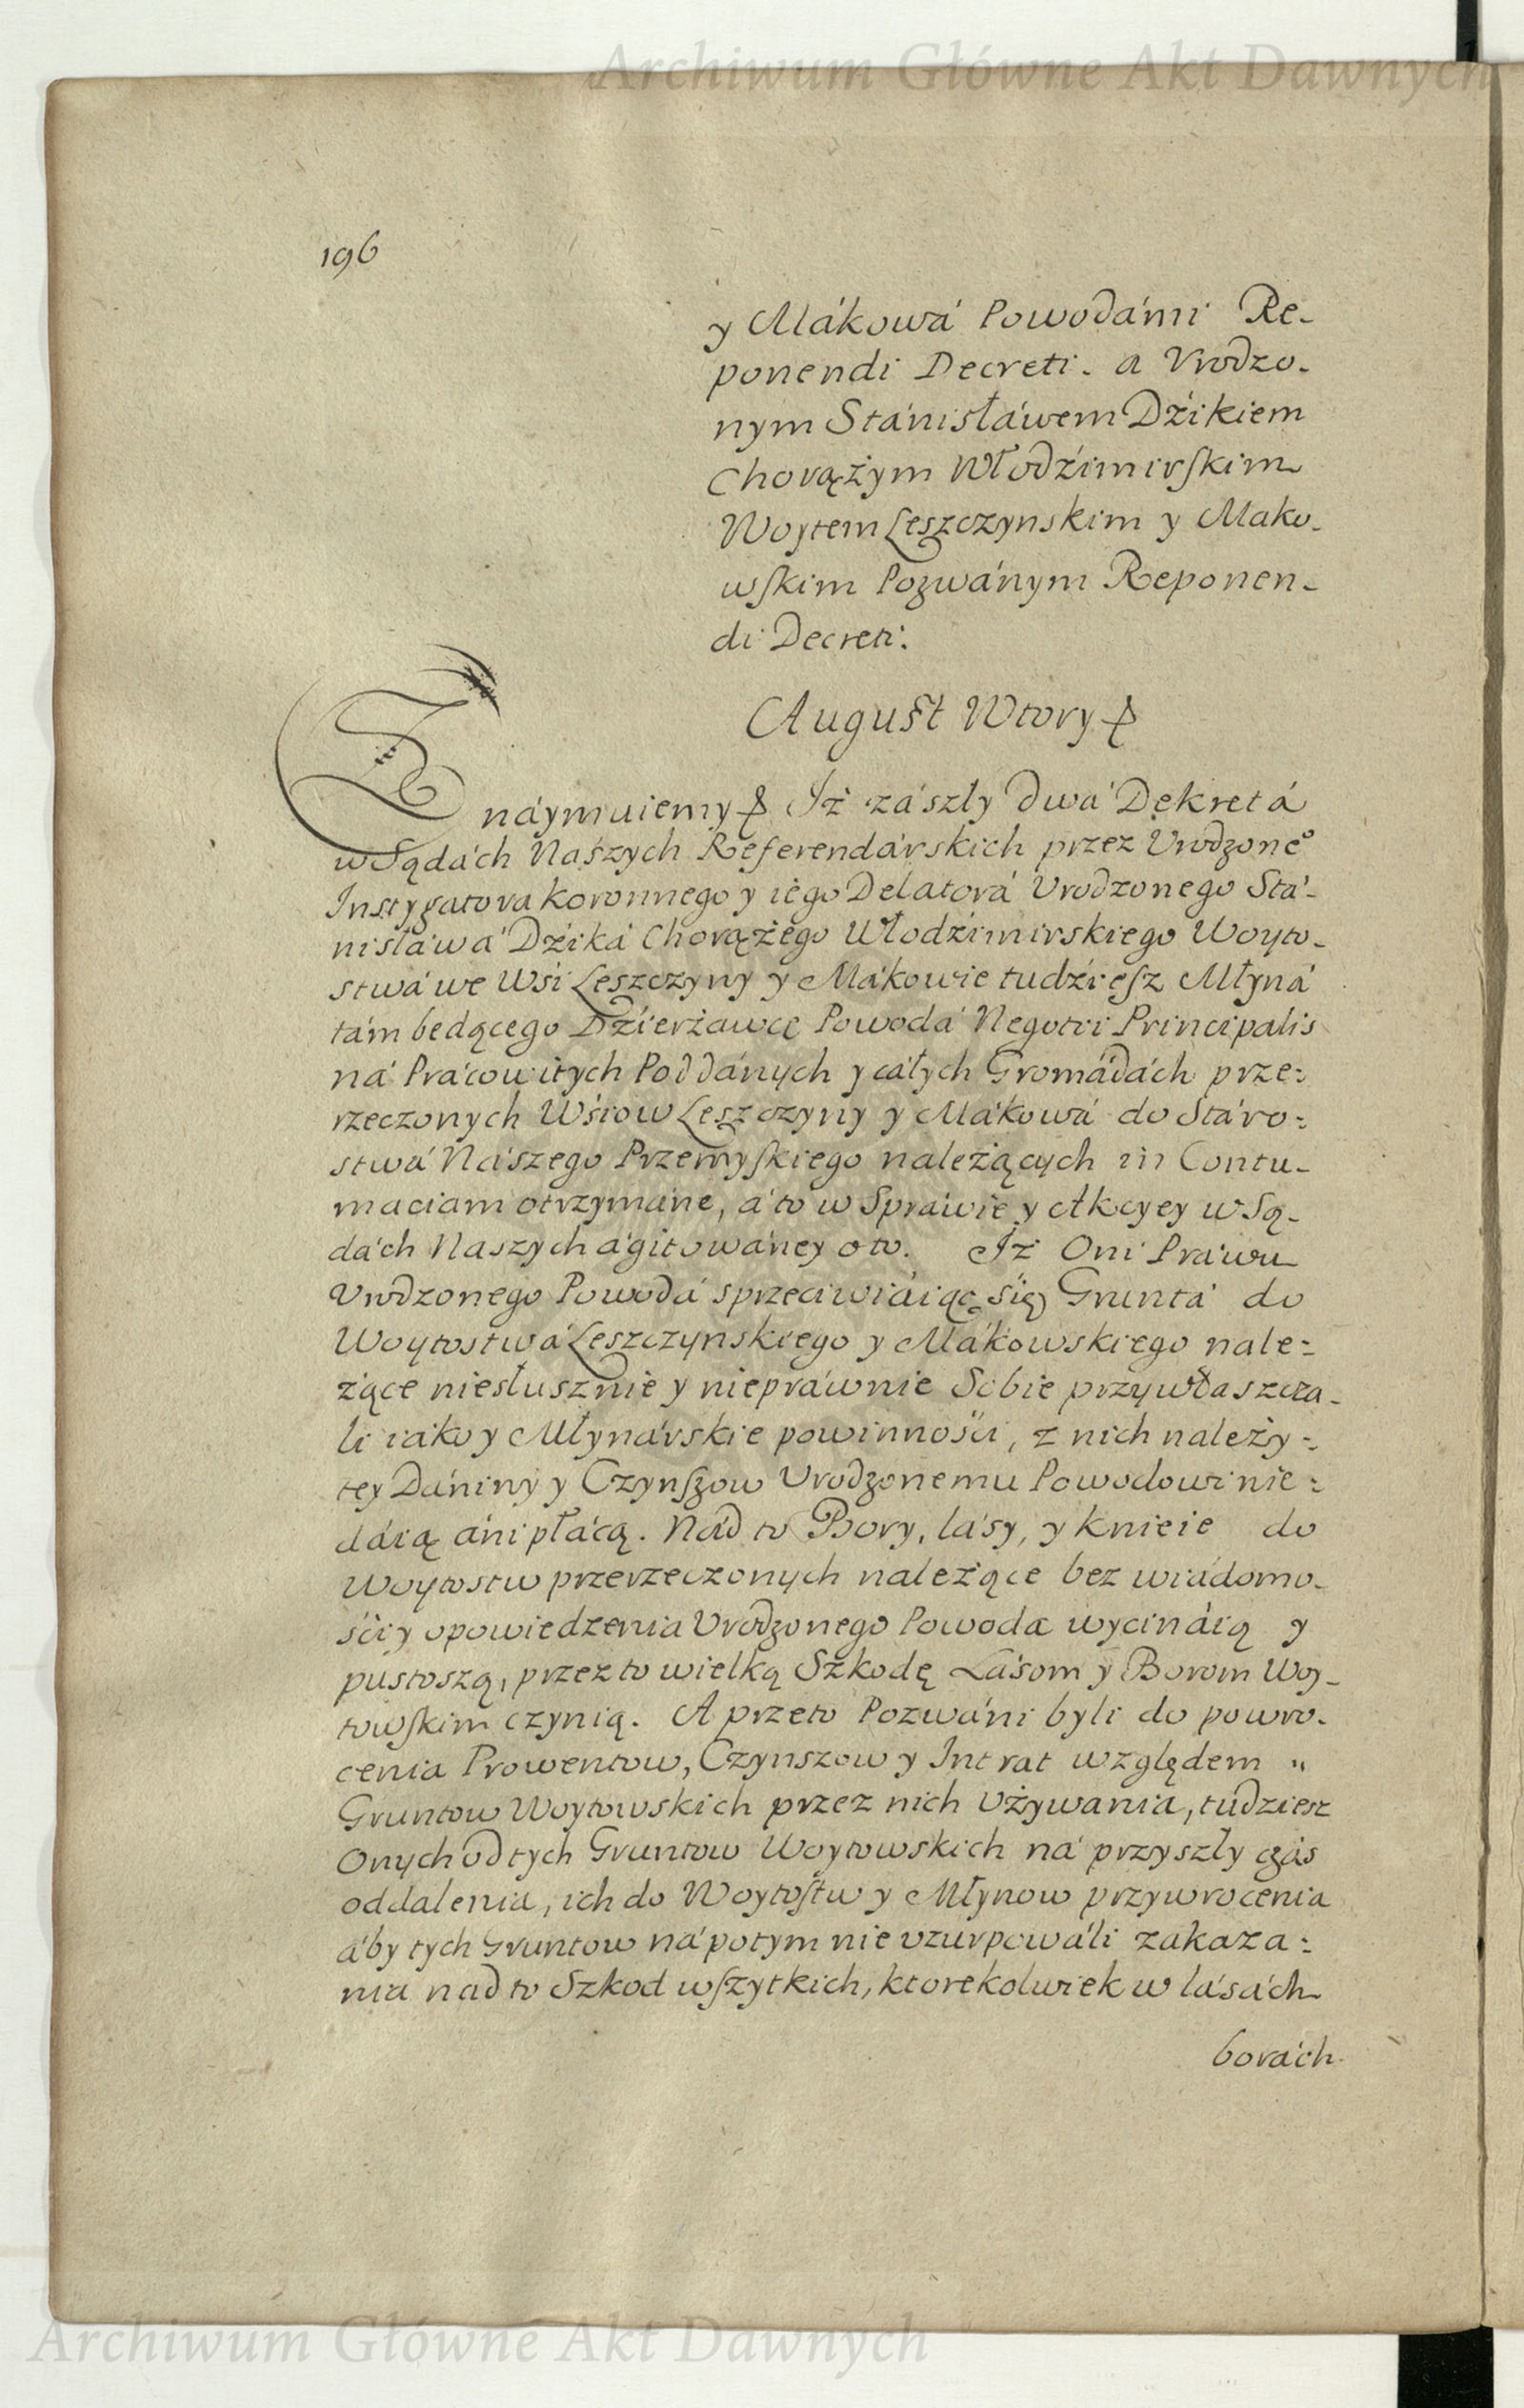 Archiwum Główne Akt Dawnych
196
y Mákowá Powodámi Re-
ponendi Decreti. a Vrodzo-
nym Stánisłáwem Dźikiem
Chorążym Włodźimirskim
Woytem Leszczynskim y Mako-
wskim Pozwánym Reponen-
di Decreti.
August Wtory
Znáymuiemy Iż zászły dwá Dekretá
w Sądách Nászych Referendárskich przez Vrodzone°
Instygatora koronnego y iégo Delatorá Urodzonego Stá-
nisłáwá Dźiká Chorążego Włodźimirskiego Woyto-
stwá we Wśi Leszczyny y Mákowie tudźiesz Młyná
tám bedącego Dźierżawcę Powodá Negotii Principalis
ná Prácowitych Poddánych y cáłych Gromádách prze-
rzeczonych Wśiow Leszczyny y Mákowá do Stáro-
stwá Nászego Przemyskiego należących in Contu-
maciam otrzymáne, á to w Spráwie y Akcyey w Są-
dách Naszych ágitowáney o to. Iż Oni Práwu
Vrodzonego Powodá sprzeciwiáiąc się Gruntá do
Woytostwá Leszczynskiego y Mákowskiego nale-
żące niesłusznie y niepráwnie Sobie przywłaszcza-
li iako y Młynárskie powinnośći, z nich należy-
tey Dániny y Czynszow Urodzonemu Powodowi nie-
dáią áni płácą. Nád to Bory, lásy, y Knieie do
Woytostw przerzeczonych należące bez wiádomo-
śći y opowiedzenia Urodzonego Powoda wycináią y
pustoszą, przez to wielką Szkodę Lásom y Borom Woy-
towskim czynią. A przeto Pozwáni byli do powro-
cenia Prowentow, Czynszow y Intrat względem "
Gruntow Woytowskich przez nich Używania, tudziesz
Onych od tych Gruntow Woytowskich ná przyszły czás
oddalenia, ich do Woytostw y Młynow przywrocenia
áby tych Gruntow nápotym nie vzurpowáli zakaza-
nia nad to Szkod wszytkich, ktorekolwiek w lásách
borách
Archiwum Główne Akt Dawnych